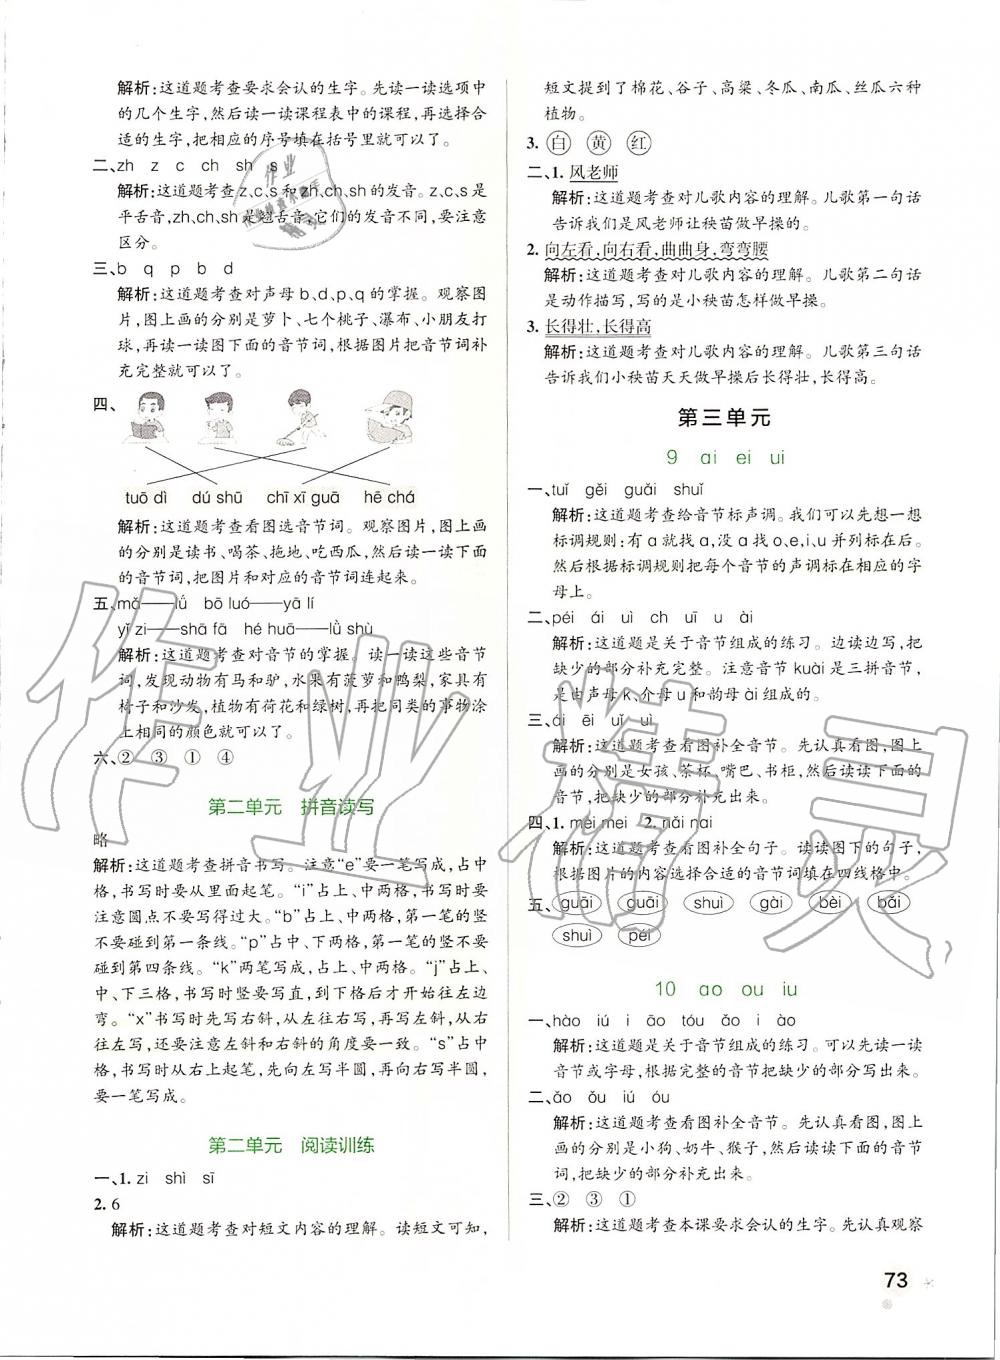 解析:这道题考查要求会认的生字。先读一读选项中
的几个生字,然后读一读课程表中的课程,再选择合
适的生字,把相应的序号填在括号里就可以了。
二、zh z c ch sh s
解析:这道题考查z、c、s和zh、ch、sh的发音。z、c、s是
平舌音,zh、ch、sh是翘舌音,它们的发音不同,要注意
区分。
三、b q p b d
解析:这道题考查对声母b、d、p、q的掌握。观察图
片,图上画的分别是萝卜、七个桃子、瀑布、小朋友打
球,再读一读图下面的音节词,根据图片把音节词补
充完整就可以了。
四、
tuō dì dú shū chī xī guā hē chá
解析:这道题考查看图选音节词。观察图片,图上画
的分别是读书、喝茶、拖地、吃西瓜,然后读一读下面
的音节词,把图片和对应的音节词连起来。
五、mǎ——lǘ bō luó——yā lí
yǐ zi——shā fā hé huā——lǜ shù
解析:这道题考查对音节的掌握。读一读这些音节
词,发现动物有马和驴,水果有菠萝和鸭梨,家具有
椅子和沙发,植物有荷花和绿树,再把同类的事物涂
上相同的颜色就可以了。
六、② ③ ① ④
第二单元 拼音读写
略
解析:这道题考查拼音书写。注意“e”要一笔写成,占中
格,书写时要从里面起笔。“i”占上、中两格,书写时要
注意圆点不要写得过大。“b”占上、中两格,第一笔的竖
不要碰到第一条线。“p”占中、下两格,第一笔的竖不要
碰到第四条线。“k”两笔写成,占上、中两格。“j”占上、
中、下三格,书写时竖要写直,到下格时才开始往左边
弯。“x”书写时先写右斜,从左往右写,再写左斜,从右
往左写,还要注意左斜和右斜的角度要一致。“s”占中
格,书写时从右起笔,先往左写半圆,再往右写半圆,要
一笔写成。
第二单元 阅读训练
一、1. zì shì sī
2. 6
解析:这道题考查对短文内容的理解。读短文可知,
短文提到了棉花、谷子、高粱、冬瓜、南瓜、丝瓜六种
植物。
3. 白 黄 红
二、1. 风老师
解析:这道题考查对儿歌内容的理解。儿歌第一句话
告诉我们是风老师让秧苗做早操的。
2. 向左看,向右看,曲曲身,弯弯腰
解析:这道题考查对儿歌内容的理解。儿歌第二句话
是动作描写,写的是小秧苗怎样做早操。
3. 长得壮,长得高
解析:这道题考查对儿歌内容的理解。儿歌第三句话
告诉我们小秧苗天天做早操后长得壮,长得高。
第三单元
9 ai ei ui
一、tuǐ gěi guǎi shuǐ
解析:这道题考查给音节标声调。我们可以先想一想
标调规则:有a就找a,没a找o、e,i、u并列标在后。
然后根据标调规则把每个音节的声调标在合适的字
母上。
二、péi ái uì ch u ài
解析:这道题是关于音节组成的练习。边读边写,把
缺少的部分补充完整。注意音节kuài是三拼音节,
是由声母k、介母u和韵母ài组成的。
三、ái ēi uǐ uì
解析:这道题考查看图补全音节。先认真看图,图上
画的分别是女孩、茶杯、嘴巴、书柜,然后读读下面的
音节,把缺少的部分补充出来。
四、1. mèi mei 2. nǎi nai
解析:这道题考查看图补全句子。读读图下的句子,
根据图片的内容选择合适的音节词填在四线格中。
五、guāi guāi shuì gài bèi bǎi
shuì péi
10 ao ou iu
一、hào iú i āo tóu ǎo i ào
解析:这道题是关于音节组成的练习。可以先读一读
音节或字母,根据完整的音节把缺少的部分补出来。
二、ǎo ǒu iú óu
解析:这道题考查看图补全音节。先认真看图,图上
画的分别是小狗、奶牛、猴子,然后读一读下面的音节
词,把缺少的部分补充出来。
三、② ③ ①
解析:这道题考查本课要求会认的生字。先认真观察
73
作业精灵